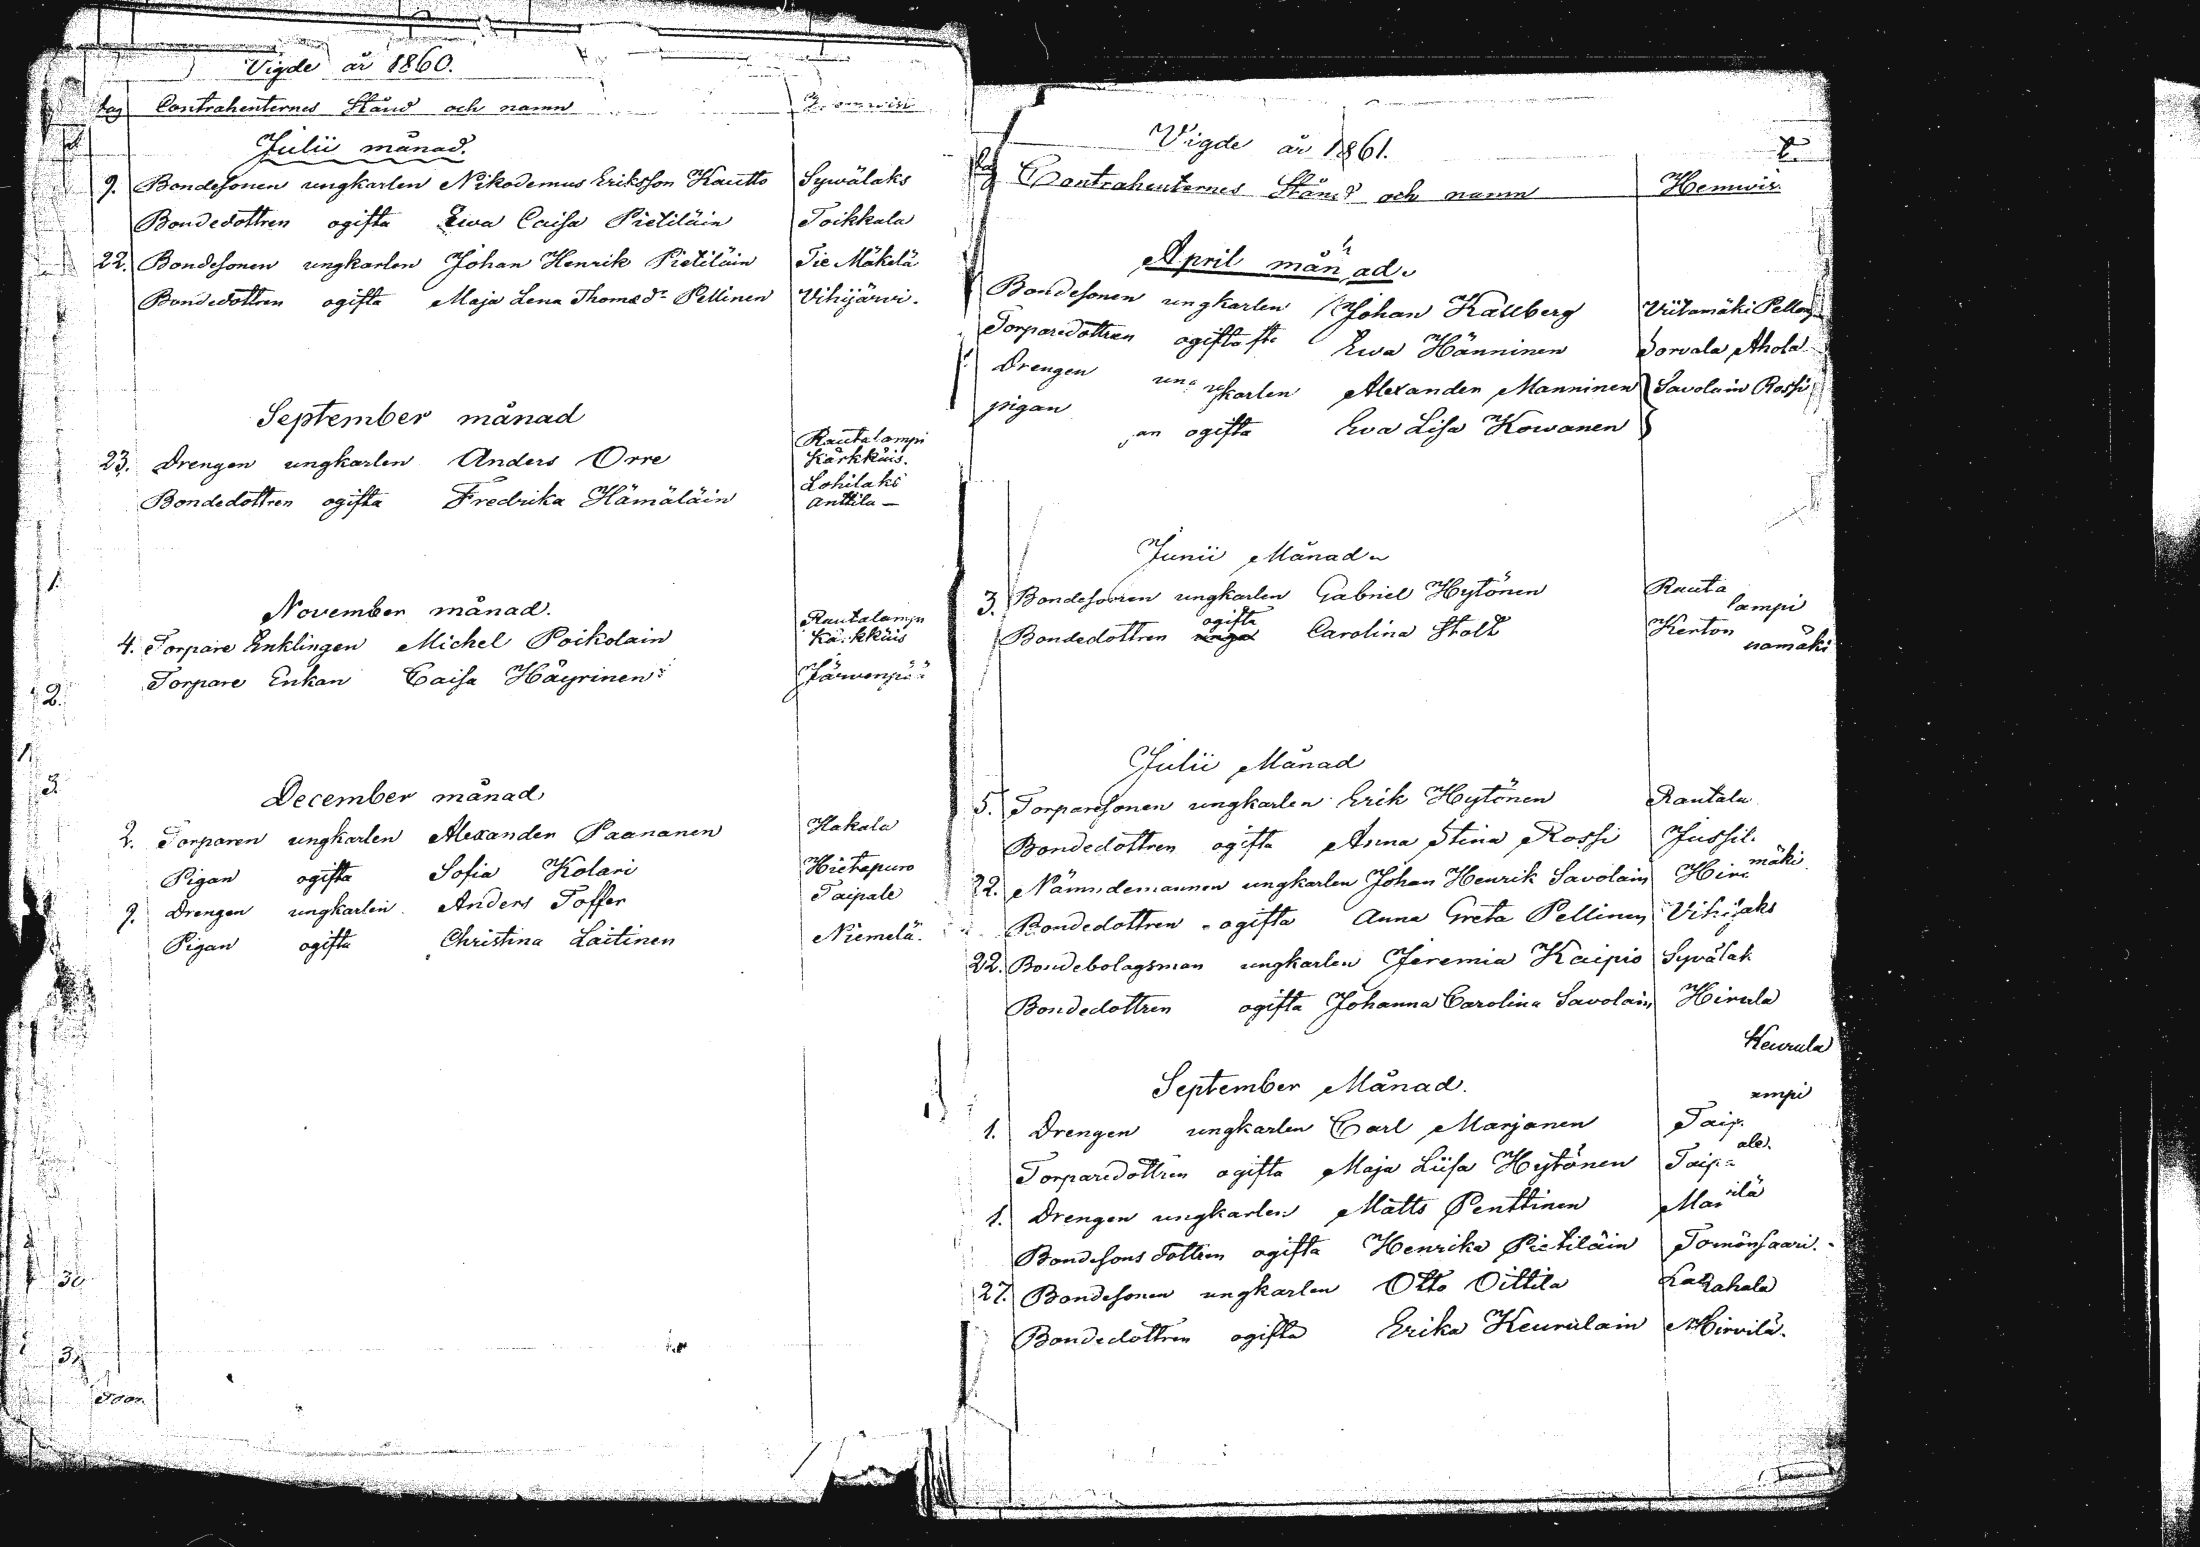 Vigde år 1860.
dag Contrahenternes Stånd och namn
Julii månad.
9. Bondesonen ungkarlen Nikodemus Eriksson Kautto Sywälaks
Bondedottren ogifta Ewa Caisa Pietiläin Toikkala
22. Bondesonen ungkarlen Johan Henrik Pietiläin Tie Mäkelä
Bondedottren ogifta Maja Lena Thomsdr Pellinen Vihijärwi.
September månad
23. Drengen ungkarlen Anders Orre Rautalampi Kärkkäis.
Bondedottren ogifta Fredrika Hämäläin Lohilaks Anttila –
November månad.
4. Torpare Enklingen Michel Poikolain Rautalampi Kärkkäis
Torpare Enkan Caisa Häyrinen Järwenpää
December månad
2. Torparen ungkarlen Alexander Paananen Hakala
Pigan ogifta Sofia Kolari Hietapuro
9. Drengen ungkarlen Anders Toffer Taipale
Pigan ogifta Christina Laitinen Niemelä.
Vigde år 1861.
Contrahenternes Stånd och namn Hemwis
April månad.
Bondesonen ungkarlen Johan Kallberg Viitamäki
Torparedottren ogifta Ewa Hänninen Sorvala Ahola
Drengen ungkarlen Alexander Manninen Savolain Rossi
pigan ogifta Ewa Lisa Kowanen
Junii Månad
3. Bondesonen ungkarlen Gabriel Hytönen Rautalampi
Bondedottren ogifta Carolina Stolt Kertonamäki
Julii Månad
5. Torparesonen ungkarlen Erik Hytönen Rautala
Bondedottren ogifta Anna Stina Rossi Jussil.
mäki
22. Nämndemannen ungkarlen Johan Henrik Savolain
Bondedottren ogifta Anna Greta Pellinen
22. Bondebolagsman ungkarlen Jeremia Kaipio Sywälak
Bondedottren ogifta Johanna Carolina Savolain Hirula
Keurula
September Månad.
mpi
1. Drengen ungkarlen Carl Marjanen Taip.
Torparedottren ogifta Maja Liisa Hytönen Taipale.
1. Drengen ungkarlen Matts Penttinen
Bondesons dottren ogifta Henrika Pietiläin Tomönsaari.
27. Bondesonen ungkarlen Otto Oittila
Bondedottren ogifta Erika Keurulain Hirvilä.